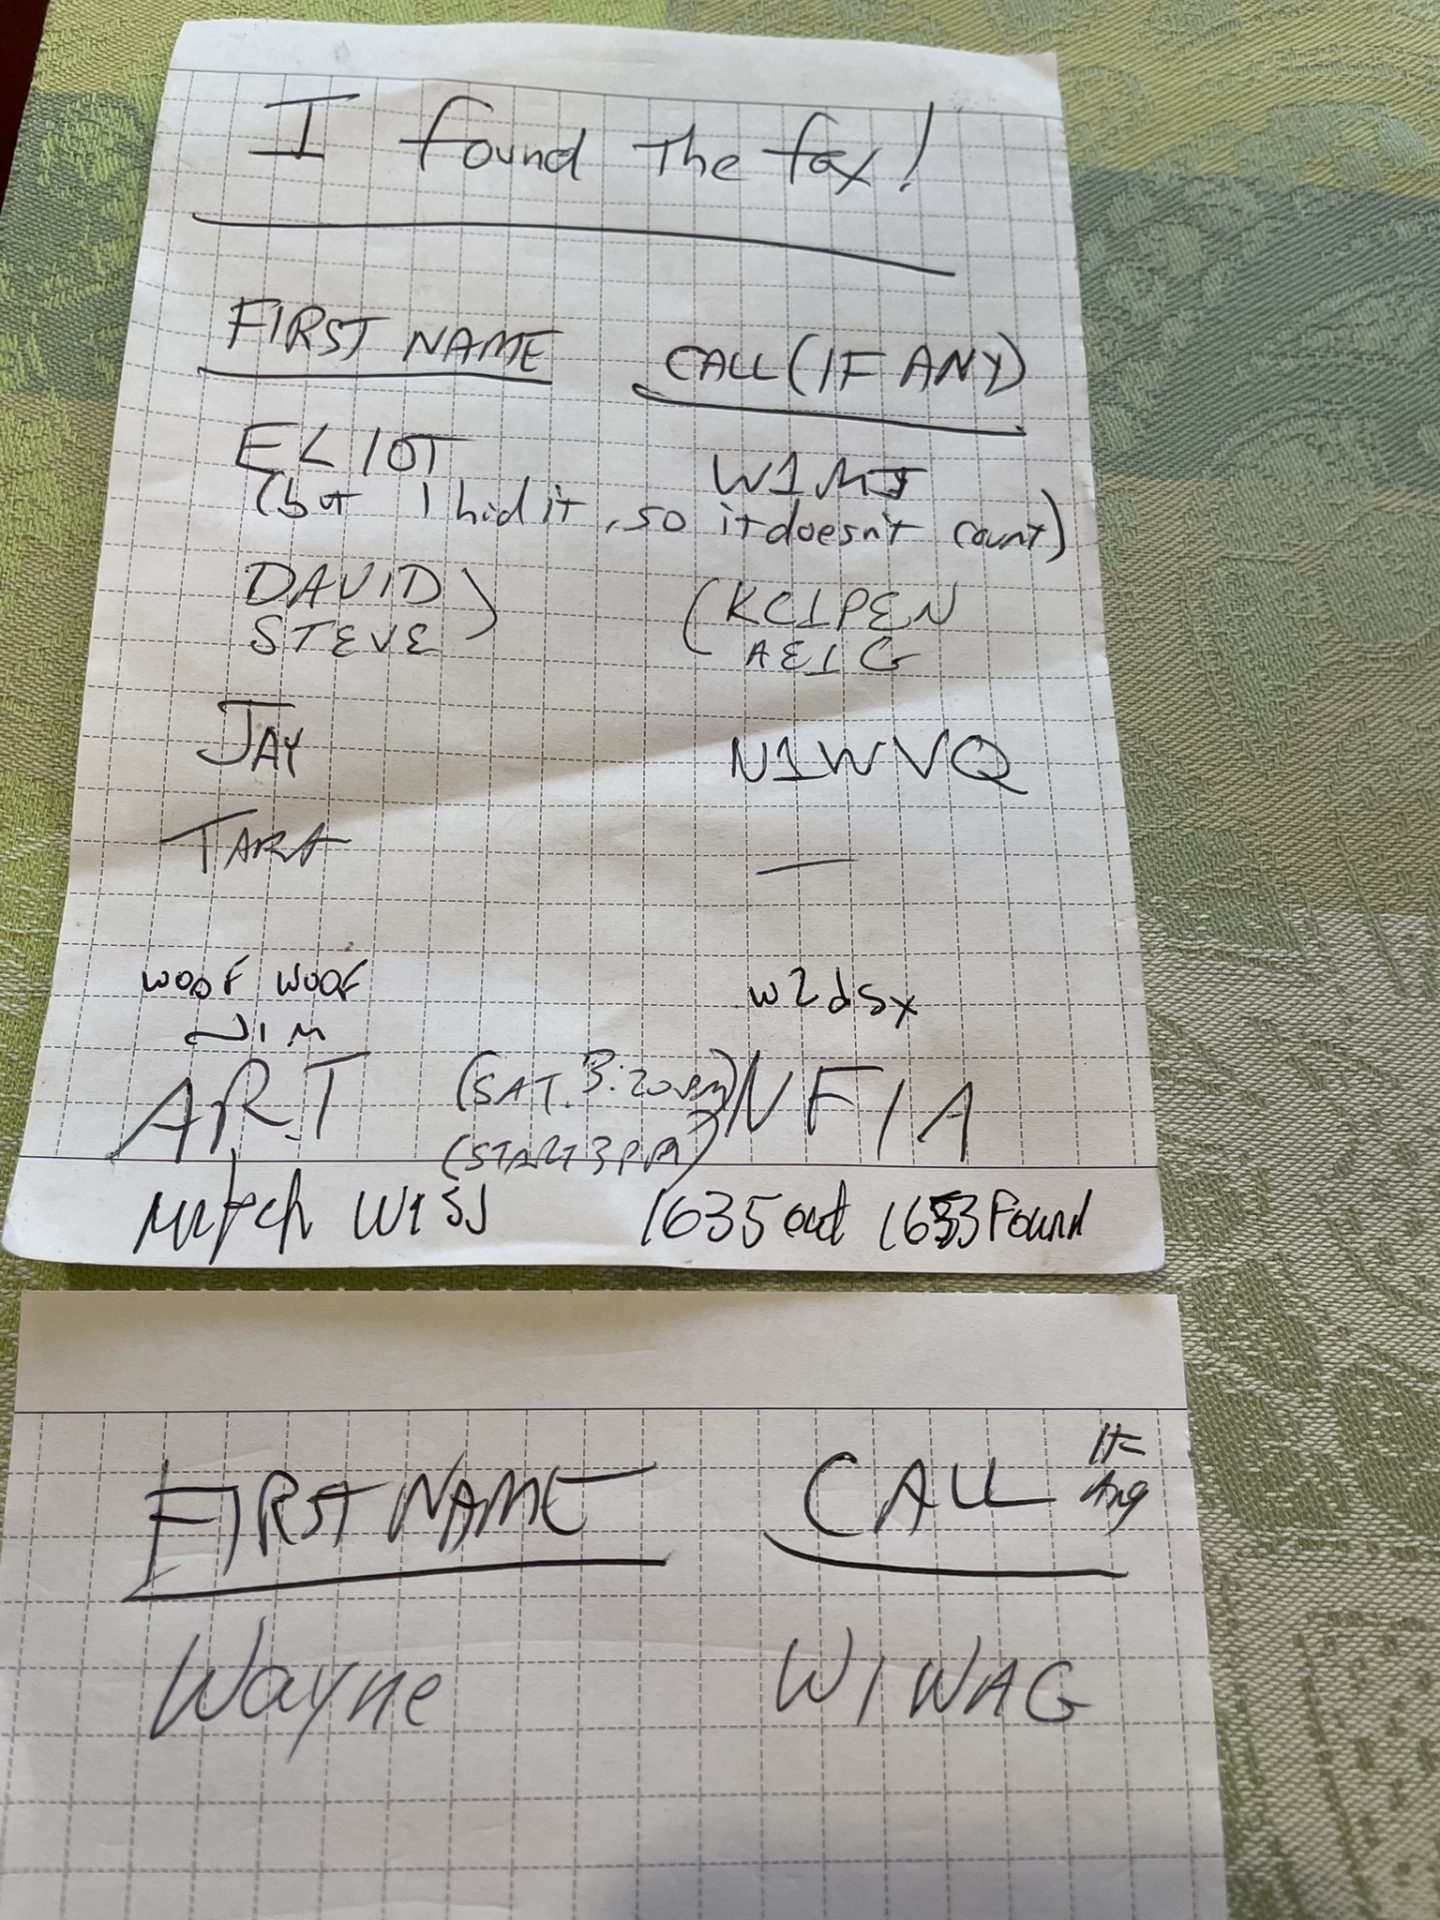 I found The fox!
FIRST NAME CALL (IF ANY)
ELIOT W1MJ
(but I hid it, so it doesn't count)
DAVID ) ( KC1PEN
STEVE AE1G
JAY N1WVQ
TARA —
WOOF WOOF w2dsx
JIM
ART (SAT. 3:20PM) NF1A
(START 3 PM)
Mitch W1SJ 1635 out 1653 Found
FIRST NAME CALL If Any
Wayne W1WAG